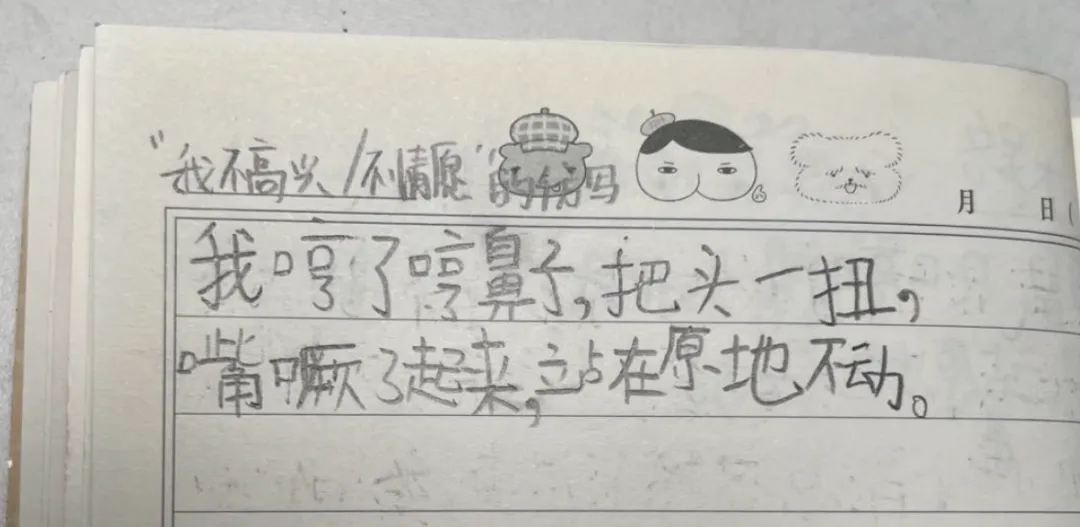 "我不高兴/不情愿"的
月 日(
我哼了哼鼻子,把头一扭,
嘴噘了起来,站在原地不动。